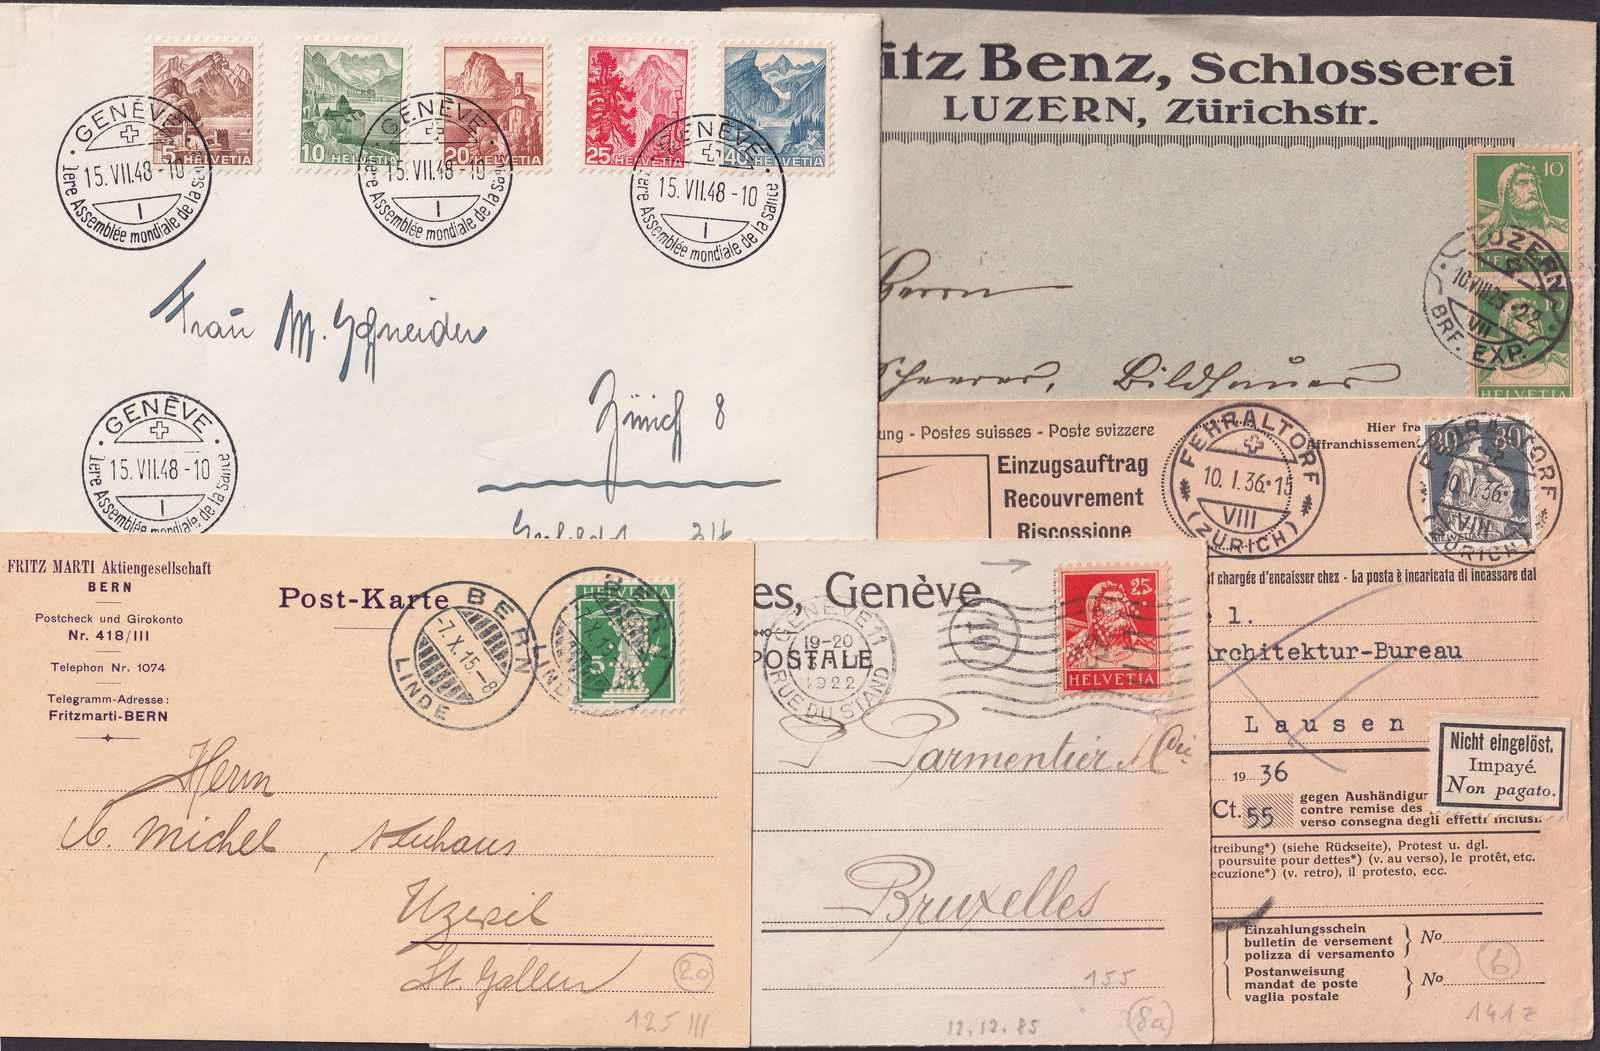 5 HELVETIA
10 HELVETIA
20 HELVETIA
25 HELVETIA
40 HELVETIA
GENÈVE
15. VII.48 - 10
I
1ere Assemblée mondiale de la santé
GENÈVE
15. VII.48 - 10
I
1ere Assemblée mondiale de la santé
GENÈVE
15. VII.48 - 10
I
1ere Assemblée mondiale de la santé
Frau M. Schneider
Zürich 8
GENÈVE
15. VII.48 - 10
I
1ere Assemblée mondiale de la santé
itz Benz, Schlosserei
LUZERN, Zürichstr.
10
HELVETIA
10
HELVETIA
LUZERN
10.VIII.25 - 22
VII
BRF. EXP.
Herrn
Scheerer, Bildhauer
ung - Postes suisses - Poste svizzere
Einzugsauftrag
Recouvrement
Riscossione
FEHRALTORF
10. I. 36. 15
VIII
(ZÜRICH)
Hier fra
Affranchissement
30 30
HELVETIA
FEHRALTORF
10. I. 36. 15
VIII
(ZÜRICH)
t chargée d'encaisser chez - La posta è incaricata di incassare dal
e l.
Architektur-Bureau
Lausen
Nicht eingelöst.
Impayé.
Non pagato.
19 36
Ct. 55
gegen Aushändigur
contre remise des
verso consegna degli effetti inclusi.
treibung*) (siehe Rückseite), Protest u. dgl.
poursuite pour dettes*) (v. au verso), le protêt, etc.
ecuzione*) (v. retro), il protesto, ecc.
Einzahlungsschein
bulletin de versement
polizza di versamento
No
Postanweisung
mandat de poste
vaglia postale
No
6
141z
FRITZ MARTI Aktiengesellschaft
BERN
Postcheck und Girokonto
Nr. 418/III
Telephon Nr. 1074
Telegramm-Adresse:
Fritzmarti-BERN
Post-Karte
BERN
-7.X.15.-8
LINDE
HELVETIA
5
BERN
LINDE
Herrn
Michel, Neuhaus
Uzwil
St. Gallen
20
125 III
es, Genève
POSTALE
GENÈVE 1
19-20
1922
RUE DU STAND
10
25
HELVETIA
Parmentier & Cie
Bruxelles
155
12.12.85
8a